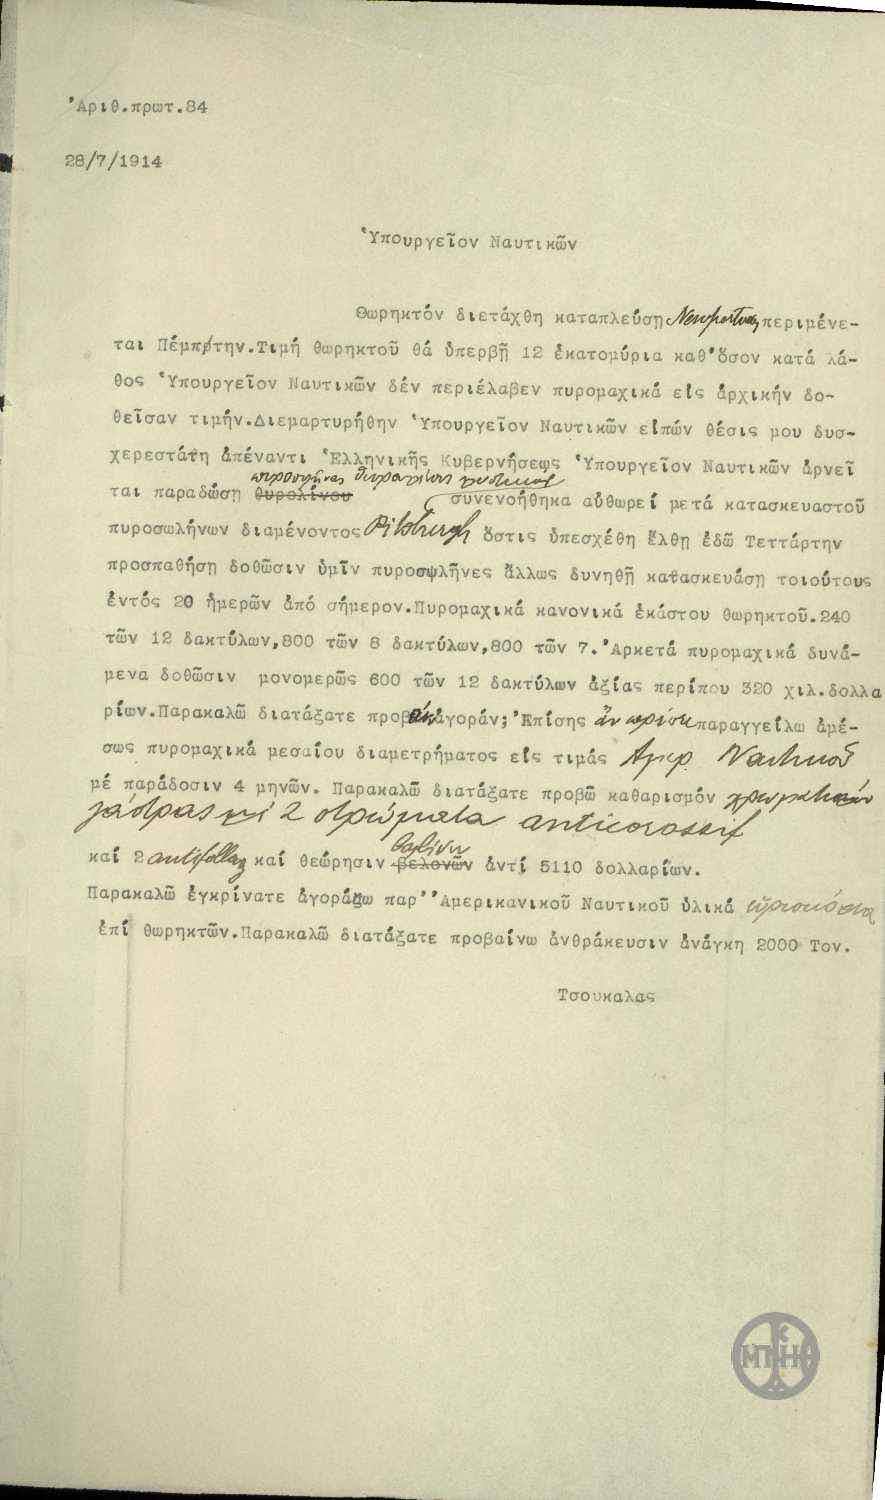 Ἀριθ.πρωτ.84
28/7/1914
Ὑπουργεῖον Ναυτικῶν
Θωρηκτόν διετάχθη καταπλεύσῃ Newport περιμένε-
ται Πέμπτην.Τιμή θωρηκτοῦ θά ὑπερβῇ 12 ἑκατομύρια καθ'ὅσον κατά λά-
θος Ὑπουργεῖον Ναυτικῶν δέν περιέλαβεν πυρομαχικά εἰς ἀρχικήν δο-
θεῖσαν τιμήν.Διεμαρτυρήθην Ὑπουργεῖον Ναυτικῶν εἰπών θέσις μου δυσ-
χερεστάτη ἀπέναντι Ἑλληνικῆς Κυβερνήσεως Ὑπουργεῖον Ναυτικῶν ἀρνεῖ
ται παραδώσῃ θυρολίνου συνενοήθηκα αὐθωρεί μετά κατασκευαστοῦ
πυροσωλήνων διαμένοντος Pitsburgh ὅστις ὑπεσχέθη ἔλθῃ ἐδῶ Τεττάρτην
προσπαθήσῃ δοθῶσιν ὑμῖν πυροσωλῆνες ἄλλως δυνηθῇ κατασκευάσῃ τοιούτους
ἐντός 20 ἡμερῶν ἀπό σήμερον.Πυρομαχικά κανονικά ἑκάστου θωρηκτοῦ.240
τῶν 12 δακτύλων,800 τῶν 8 δακτύλων,800 τῶν 7.Ἀρκετά πυρομαχικά δυνά-
μενα δοθῶσιν μονομερῶς 600 τῶν 12 δακτύλων ἀξίας περίπου 320 χιλ.δολλα
ρίων.Παρακαλῶ διατάξατε προβῶ ἀγοράν;Ἐπίσης ἄν παραγγείλω ἀμέ-
σως πυρομαχικά μεσαίου διαμετρήματος εἰς τιμάς Ἀμερ. Ναυτικοῦ
μέ παράδοσιν 4 μηνῶν. Παρακαλῶ διατάξατε προβῶ καθαρισμόν χρωματισμόν
γάστρας μέ 2 στρώματα anticorossif
καί 2 καί θεώρησιν βελονῶν ἀντί 5110 δολλαρίων.
Παρακαλῶ ἐγκρίνατε ἀγοράσω παρ' Ἀμερικανικοῦ Ναυτικοῦ ὑλικά εὑρισκόμενα
ἐπί θωρηκτῶν.Παρακαλῶ διατάξατε προβαίνω ἀνθράκευσιν ἀνάγκη 2000 Τον.
Τσουκαλας